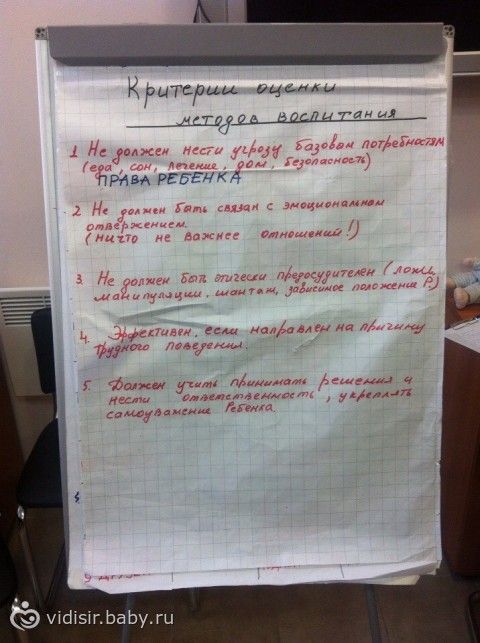 Критерии оценки
методов воспитания
1 Не должен нести угрозу базовом потребностям
(еда, сон, лечение, дом, безопасность)
ПРАВА РЕБЕНКА
2. Не должен быть связан с эмоциональном
отвержением.
(ничто не важнее отношений!)
3. Не должен быть этически предосудителен (ложь,
манипуляции, шантаж, зависимое положение Р.)
4. Эффективен, если направлен на причину
трудного поведения.
5. Должен учить принимать решения и
нести ответственность, укреплять
самоуважение Ребенка.
vidisir.baby.ru